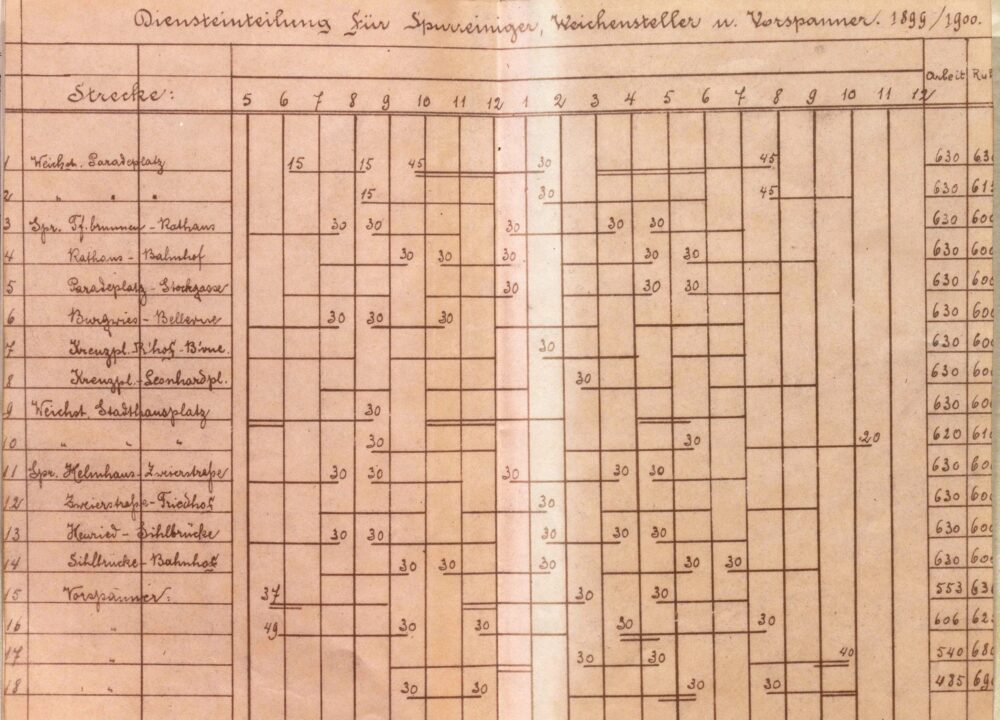 Diensteinteilung für Spurreiniger, Weichensteller u. Vorspanner. 1899/1900.
Arbeit Ruh
Strecke: 5 6 7 8 9 10 11 12 1 2 3 4 5 6 7 8 9 10 11 12
1 Weichst. Paradeplatz 15 15 45 30 45 630 630
2 " " " 15 30 45 630 615
3 Spr. Pf.brunnen - Rathaus 30 30 30 30 30 630 600
4 Rathaus - Bahnhof 30 30 30 30 30 630 600
5 Paradeplatz - Stockgasse 30 30 30 630 600
6 Burgwies - Bellevue 30 30 30 630 600
7 Kreuzpl. - B'vue. 30 630 600
8 Kreuzpl. - Leonhardpl. 30 630 600
9 Weichst. Stadthausplatz 30 630 600
10 " " " 30 30 20 620 610
11 Spr. Helmhaus - Zweierstraße 30 30 30 30 30 630 600
12 Zweierstraße - Friedhof 30 630 600
13 Heuried - Sihlbrücke 30 30 30 30 30 630 600
14 Sihlbrücke - Bahnhof 30 30 30 30 30 630 600
15 Vorspänner: 37 30 30 553 630
16 " 49 30 30 30 30 606 62
17 " 30 30 40 540 680
18 " 30 30 30 30 485 690